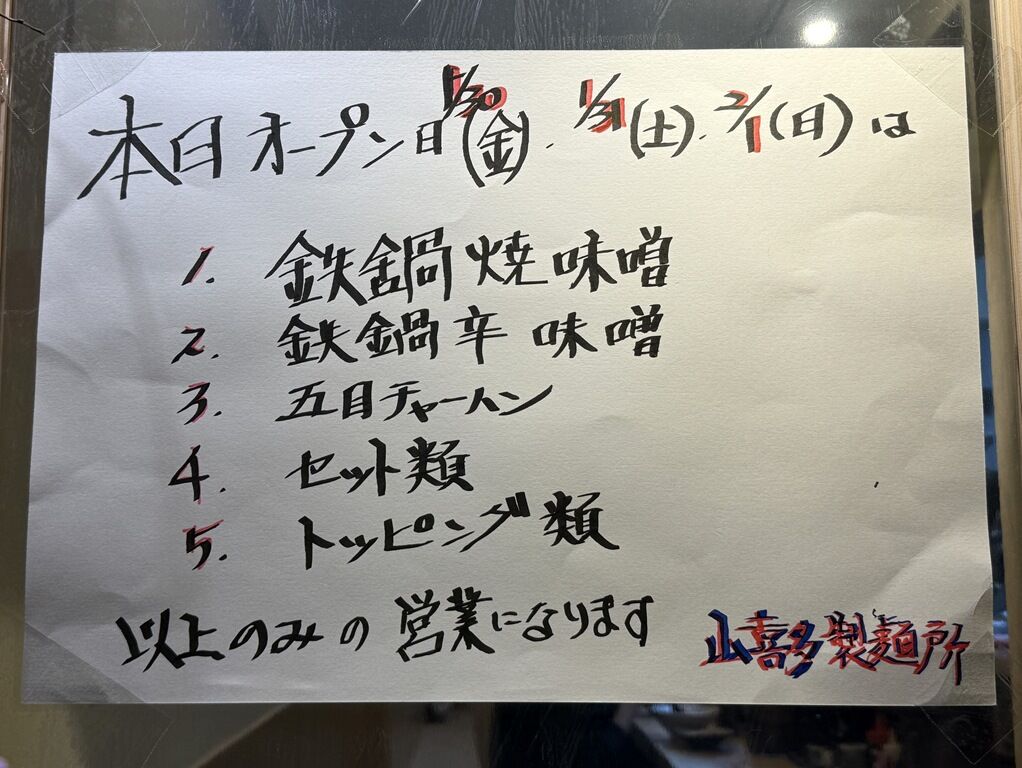 本日オープン日1/30(金)、1/31(土)、2/1(日)は
1. 鉄鍋焼味噌
2. 鉄鍋辛味噌
3. 五目チャーハン
4. セット類
5. トッピング類
以上のみの営業になります
山喜多製麺所